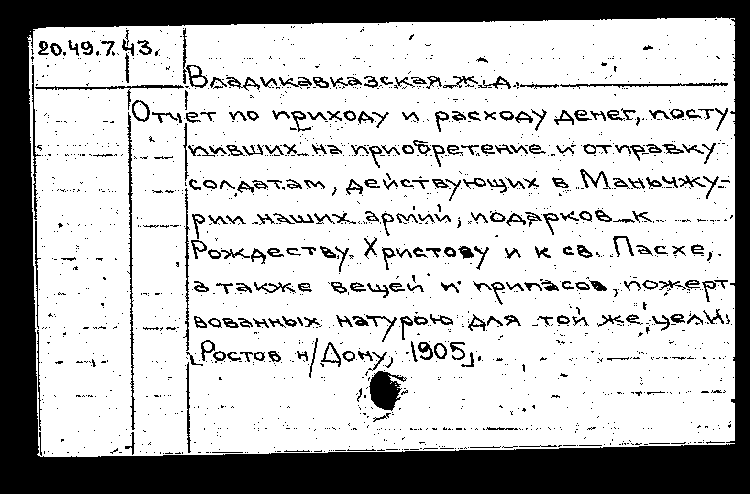 20.49.7.43.
Владикавказская ж. д.
Отчет по приходу и расходу денег, посту-
пивших на приобретение и отправку
солдатам, действующих в Маньчжу-
рии наших армий, подарков к
Рождеству Христову и к св. Пасхе,
а также вещей и припасов, пожерт-
вованных натурою для той же цели.
[Ростов н/Дону, 1905].